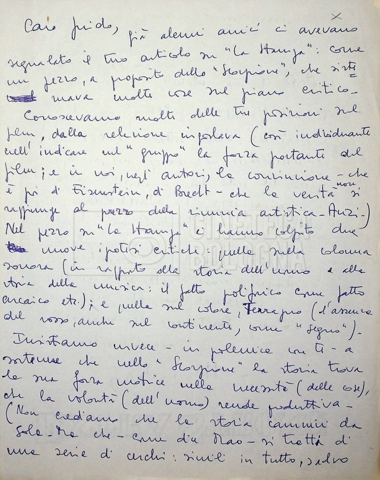 Caro Guido,
già alcuni amici ci avevano
segnalato il tuo articolo su "La Stampa": come
un pezzo, a proposito dello "Scorpione", che siste=
mava molte cose sul piano critico -
Conoscevamo molte delle tue posizioni sul
film, dalla relazione ingorlava (così individuante
nell'indicare nel "gruppo" la forza portante del
film; e in noi, negli autori, la convinzione - che
è poi di Eisenstein, di Brecht - che la verità non si
raggiunge al prezzo della rinuncia artistica - Anzi.)
Nel pezzo su "La Stampa" ci hanno colpito due
nuove ipotesi critiche: quella sulla colonna
sonora (in rapporto alla storia dell'uomo e alla
storia della musica: il fatto polifonico come fatto
arcaico etc.); e quella sul colore, (l'assenza
del rosso, anche sul continente, come "segno") -
Insistiamo invece - in polemica con te - a
sostenere che nello "Scorpione" la storia trova
la sua forza motrice nella necessità (delle cose),
che la volontà (dell'uomo) rende produttiva -
(Non crediamo che la storia cammini da
sola - Ma che - come dice Mao - si tratta di
una serie di cerchi: simili in tutto, salvo